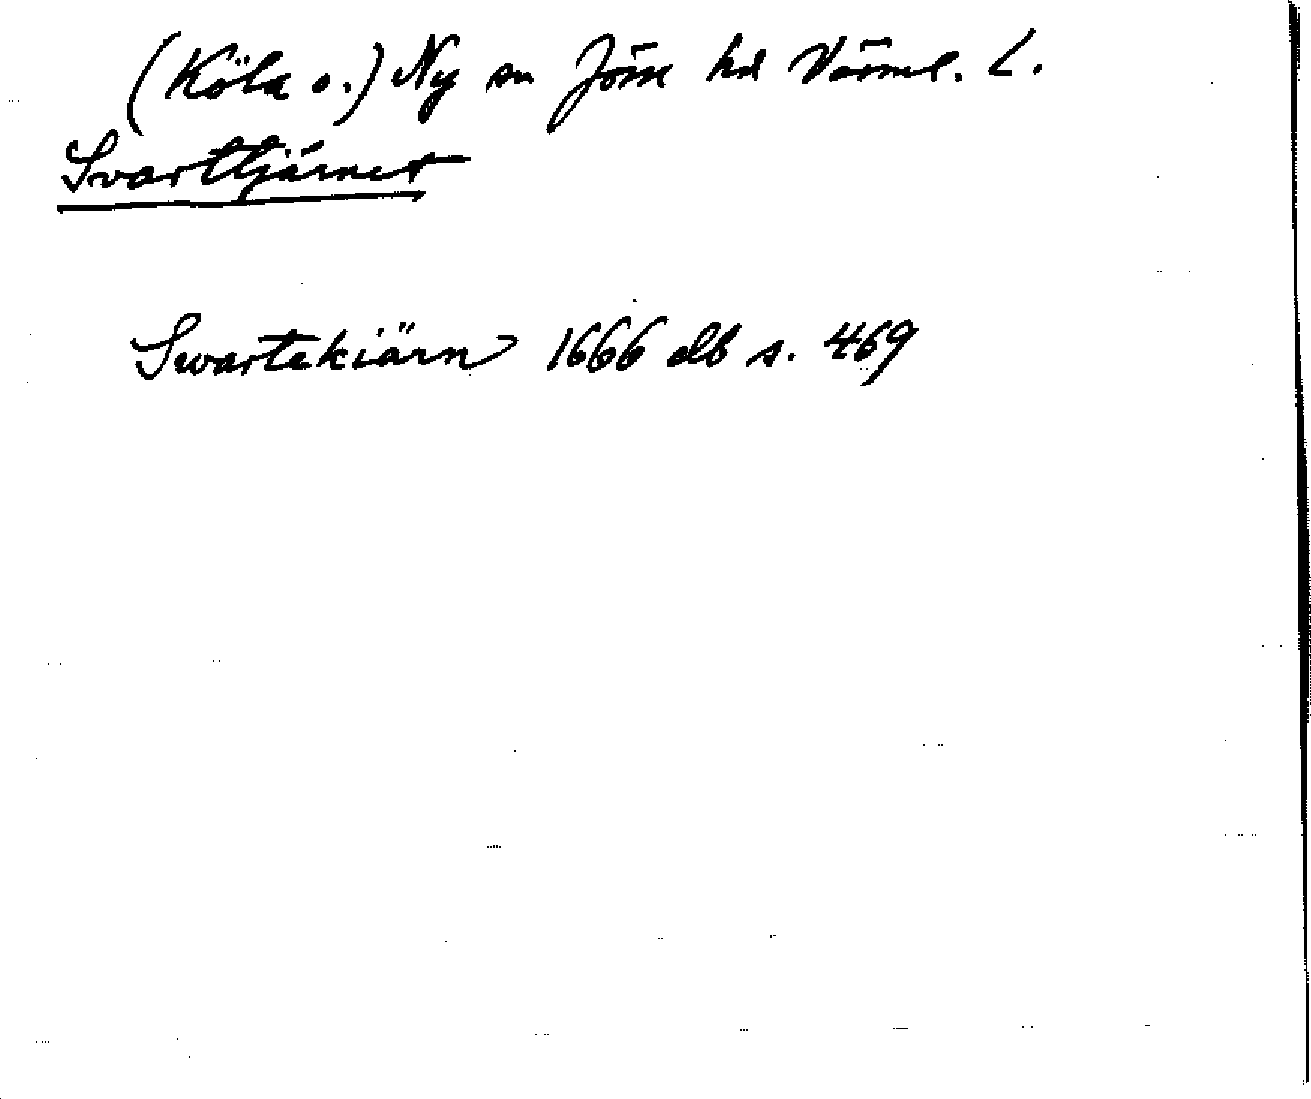 (Köla o.) Ny sn Jösse hd Värml. L.
Svarttjärnet
Swartekiärn 1666 db s. 469